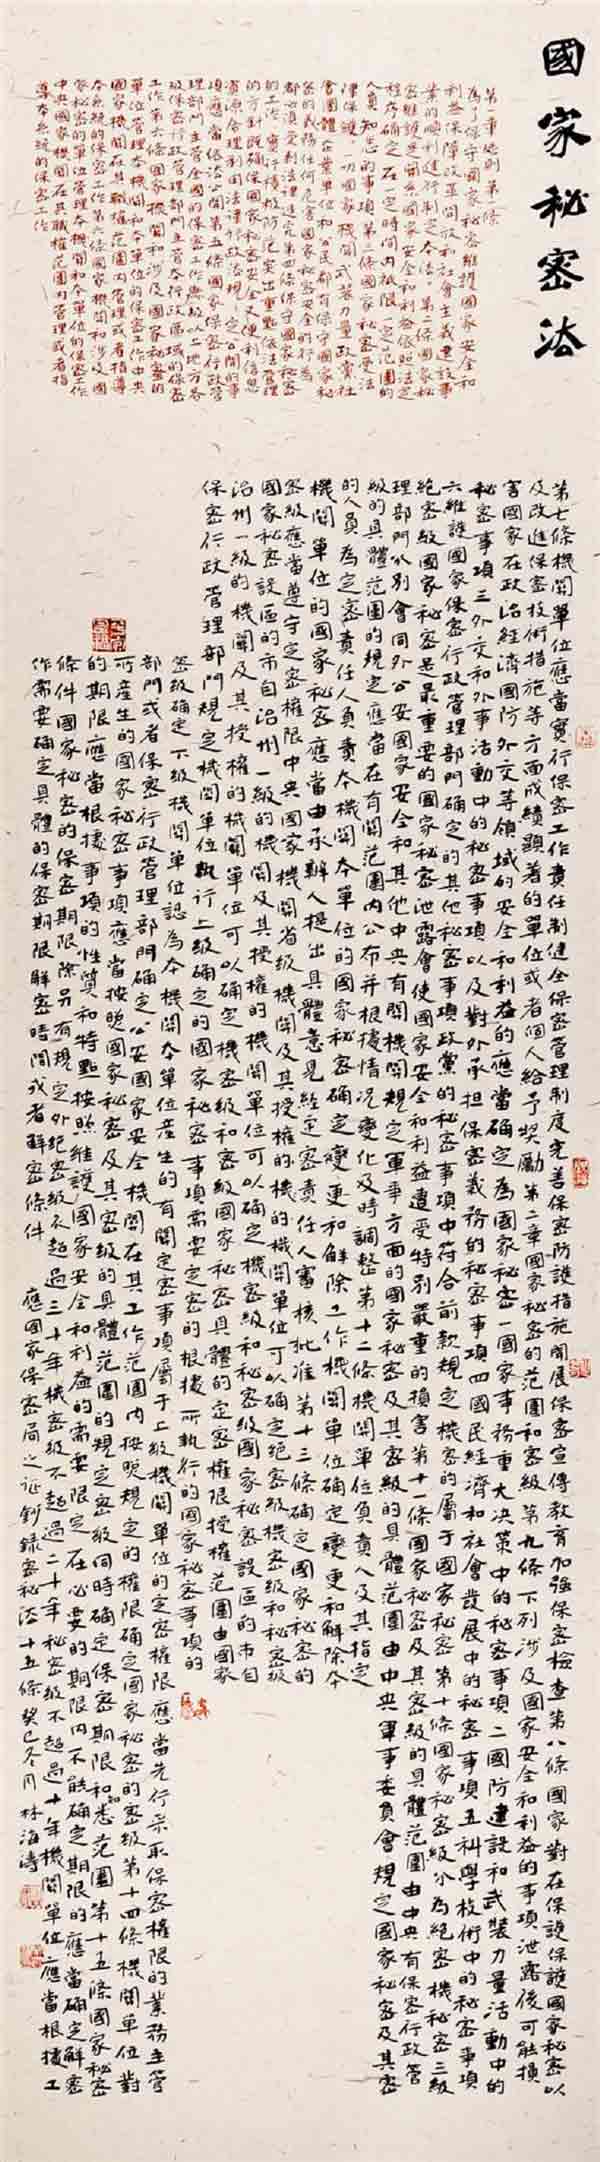 國家秘密法
第一章總則第一條
為了保守國家秘密維護國家安全和
利益保障改革開放和社會主義建設事
業的順利進行制定本法。第二條國家秘
密維護是關系國家安全和利益依照法定
程序確定在一定時間內被限一定范圍的
人員知悉的事項第三條國家秘密受法
律保護一切國家機關武裝力量政黨社
會團體企業單位和公民都有保守國家秘
密的義務任何危害國家秘密安全的行為
都必須受到法律追究第四條保守國家秘密
的工作實行積極防范突出重點依法管理
的方針既確保國家秘密安全又便利信息
資源合理利用法律行政法規定公開的事
項應當依法公開第五條國家保密行政管
理部門主管全國的保密工作縣級以上地方各
級保密行政管理部門主管本行政區域的保密
工作第六條國家機關和涉及國家秘密的
單位管理本機關和本單位的保密工作中央
國家機關在其職權范圍內管理或者指導
本系統的保密工作第六條國家機關和涉及國
家秘密的單位管理本機關和本單位的保密工作
中央國家機關在其職權范圍內管理或者指
導本系統的保密工作
第七條機關單位應當實行保密工作責任制健全保密管理制度完善保密防護措施開展保密宣傳教育加強保密檢查第八條國家對在保護保護國家秘密以
及改進保密技術措施等方面成績顯著的單位或者個人給予獎勵第二章國家秘密的范圍和密級第九條下列涉及國家安全和利益的事項泄露後可能損
害國家在政治經濟國防外交等領域的安全和利益的應當確定為國家秘密一國家事務重大決策中的秘密事項二國防建設和武裝力量活動中的
秘密事項三外交和外事活動中的秘密事項以及對外承担保密義務的秘密事項四國民經濟和社會發展中的秘密事項五科學技術中的秘密事項
六維護國家保密行政管理部門確定的其他秘密事項政黨的秘密事項中符合前款規定機密的屬于國家秘密第十條國家秘密級分為絕密機密秘密三級
絕密級國家秘密是最重要的國家秘密泄露會使國家安全和利益遭受特別嚴重的損害第十一條國家秘密及其密級的具體范圍由中央有保密行政管
理部門分別會同外公安國家安全和其他中央有關機關規定軍事方面的國家秘密及其密級的具體范圍由中央軍事委員會規定國家秘密及其密
級的具體范圍的規定應當在有關范圍內公布并根據情況變化及時調整第十二條機關單位負責人及其指定
的人員為定密責任人負責本機關本單位的國家秘密確定變更和解除工作機關單位確定變更和解除本
機關單位的國家秘密應當由承辦人提出具體意見經定密責任人審核批准第十三條確定國家秘密的
密級應當遵守定密權限中央國家機關省級機關及其授權的機關單位可以確定絕密級機密級和秘密級
國家秘密設區的市自治州一級的機關及其授權的機關單位可以確定機密級和秘密級國家秘密設區的市自
治州一級的機關及其授權的機關單位可以確定機密級和秘密級國家秘密具體的定密權限授權范圍由國家
保密行政管理部門規定機關單位執行上級確定的國家秘密事項需要定密的根據所執行的國家秘密事項的
密級確定下級機關單位認為本機關本單位産生的有關定密事項屬于上級機關單位的定密權限應當先行采取保密權限的業務主管
部門或者保密行政管理部門確定公安國家安全機關在其工作范圍內按照規定的權限確定國家秘密的密級第十四條機關單位對
所産生的國家秘密事項應當按照國家秘密及其密級的具體范圍的規定確定密級同時確定保密期限和知悉范圍第十五條國家秘密
的期限應當根據事項的性質和特點按照維護國家安全和利益的需要限定在必要的期限內不能確定期限的應當確定解密
條件國家秘密的保密期限除另有規定外絕密級不超過三十年機密級不超過二十年秘密級不超過十年機關單位應當根據工
作需要確定具體的保密期限解密時間或者解密條件
應國家保密局之征鈔錄密秘法十五條癸巳冬月林海濤